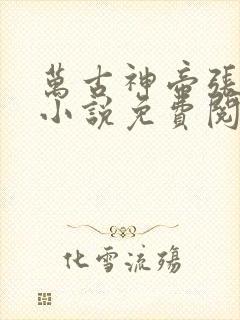 萬古神帝張
小說免費閱
化雪流殤